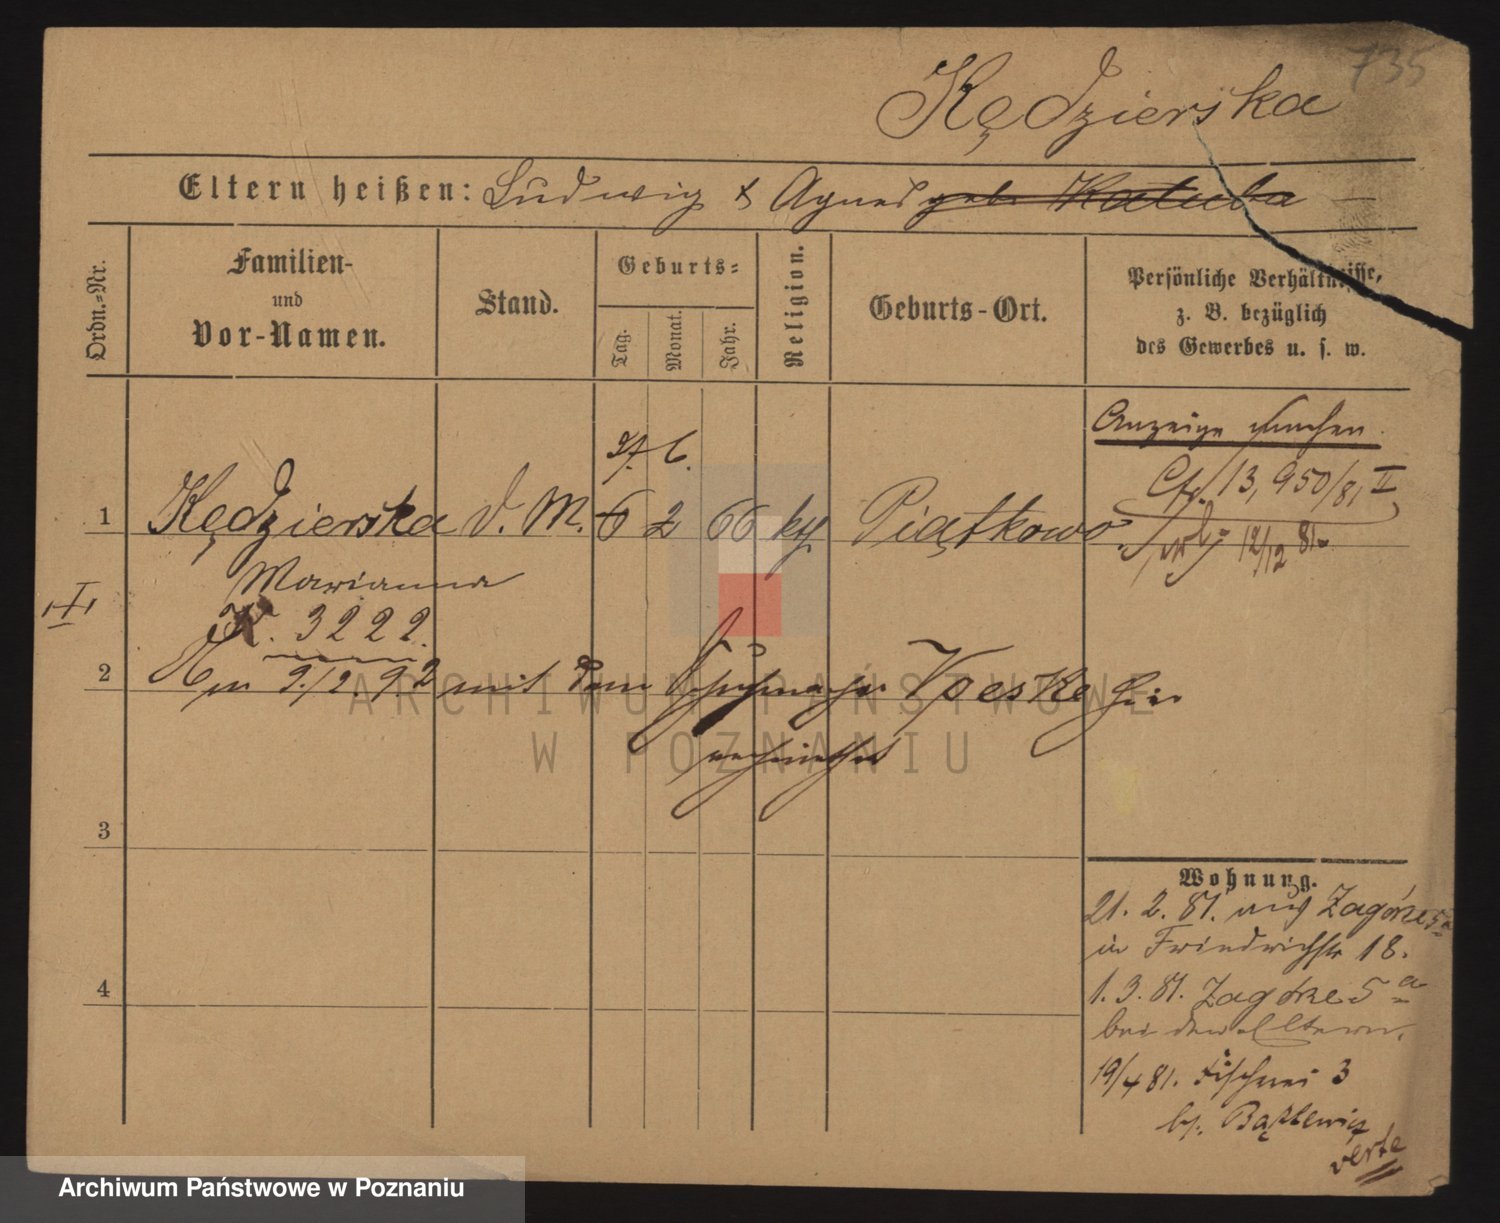 735
Kędzierska
Eltern heißen: Ludwig & Agnes geb. Katuba
Ordn.-Nr.
Familien-
und
Vor-Namen.
Stand.
Geburts-
Tag.
Monat.
Jahr.
Religion.
Geburts-Ort.
Persönliche Verhältnisse,
z. B. bezüglich
des Gewerbes u. s. w.
Anzeige machen.
Cfr. 13,950/81 II
12/12 81.
6.
1 Kędzierska d. M. 6 2 66 kth Piątkowo
Marianna
I
K. 3222.
2 9./2. 92 mit dem Schuhmacher hier
verheirathet
3
4
Wohnung.
21. 2. 81. aus Zagórze 5a
in Friedrichstr 18.
1. 3. 81. Zagórze 5a
bei den Eltern.
19/4 81. Fischerei 3
verte
ARCHIWUM PAŃSTWOWE
W POZNANIU
Archiwum Państwowe w Poznaniu